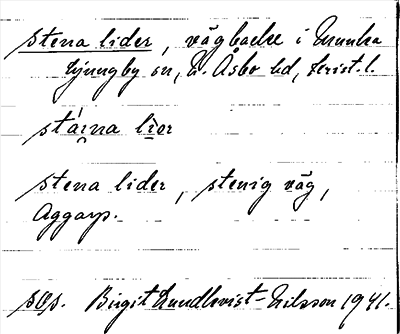 stena lider, vägbacke i Munka
Ljungby sn, N. Åsbo hd, Krist. l.
stá̱rna lị̄or
stena lider, stenig väg,
Aggarp.
sos. Birgit Lundkvist-Nilsson 1941.